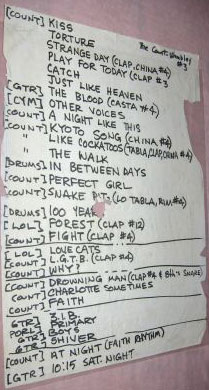 [COUNT] KISS
TORTURE
The Cure
STRANGE DAY (CLAP, CHINA #4)
#3
PLAY FOR TODAY (CLAP #3
CATCH
JUST LIKE HEAVEN
[GTR] THE BLOOD (CASTA #4)
[CYM] OTHER VOICES
[COUNT] A NIGHT LIKE THIS
[COUNT] KYOTO SONG (CHINA, #4)
" LIKE COCKATOOS (TABLA, CLAP, CHINA #4
" THE WALK
[DRUMS] IN BETWEEN DAYS
[COUNT] PERFECT GIRL
[COUNT] SNAKE PIT (LO TABLA, RIM #4)
[DRUMS] 100 YEA
[LOL] FOREST (CLAP #12)
[COUNT] FIGHT (CLAP #4)
[LOL] LOVE CATS
[COUNT] L.G.T.B. (CLAP #4)
[COUNT] WHY?
[COUNT] DROWNING MAN (CLAP #4 & 8th's SNARE)
[COUNT] CHARLOTTE SOMETIMES
[COUNT] FAITH
3.I.B.
GTR] PRIMARY
PORL] BOYS
GTR] SHIVER
[COUNT] AT NIGHT (FAITH RHYTHM)
[GTR] 10:15 SAT. NIGHT